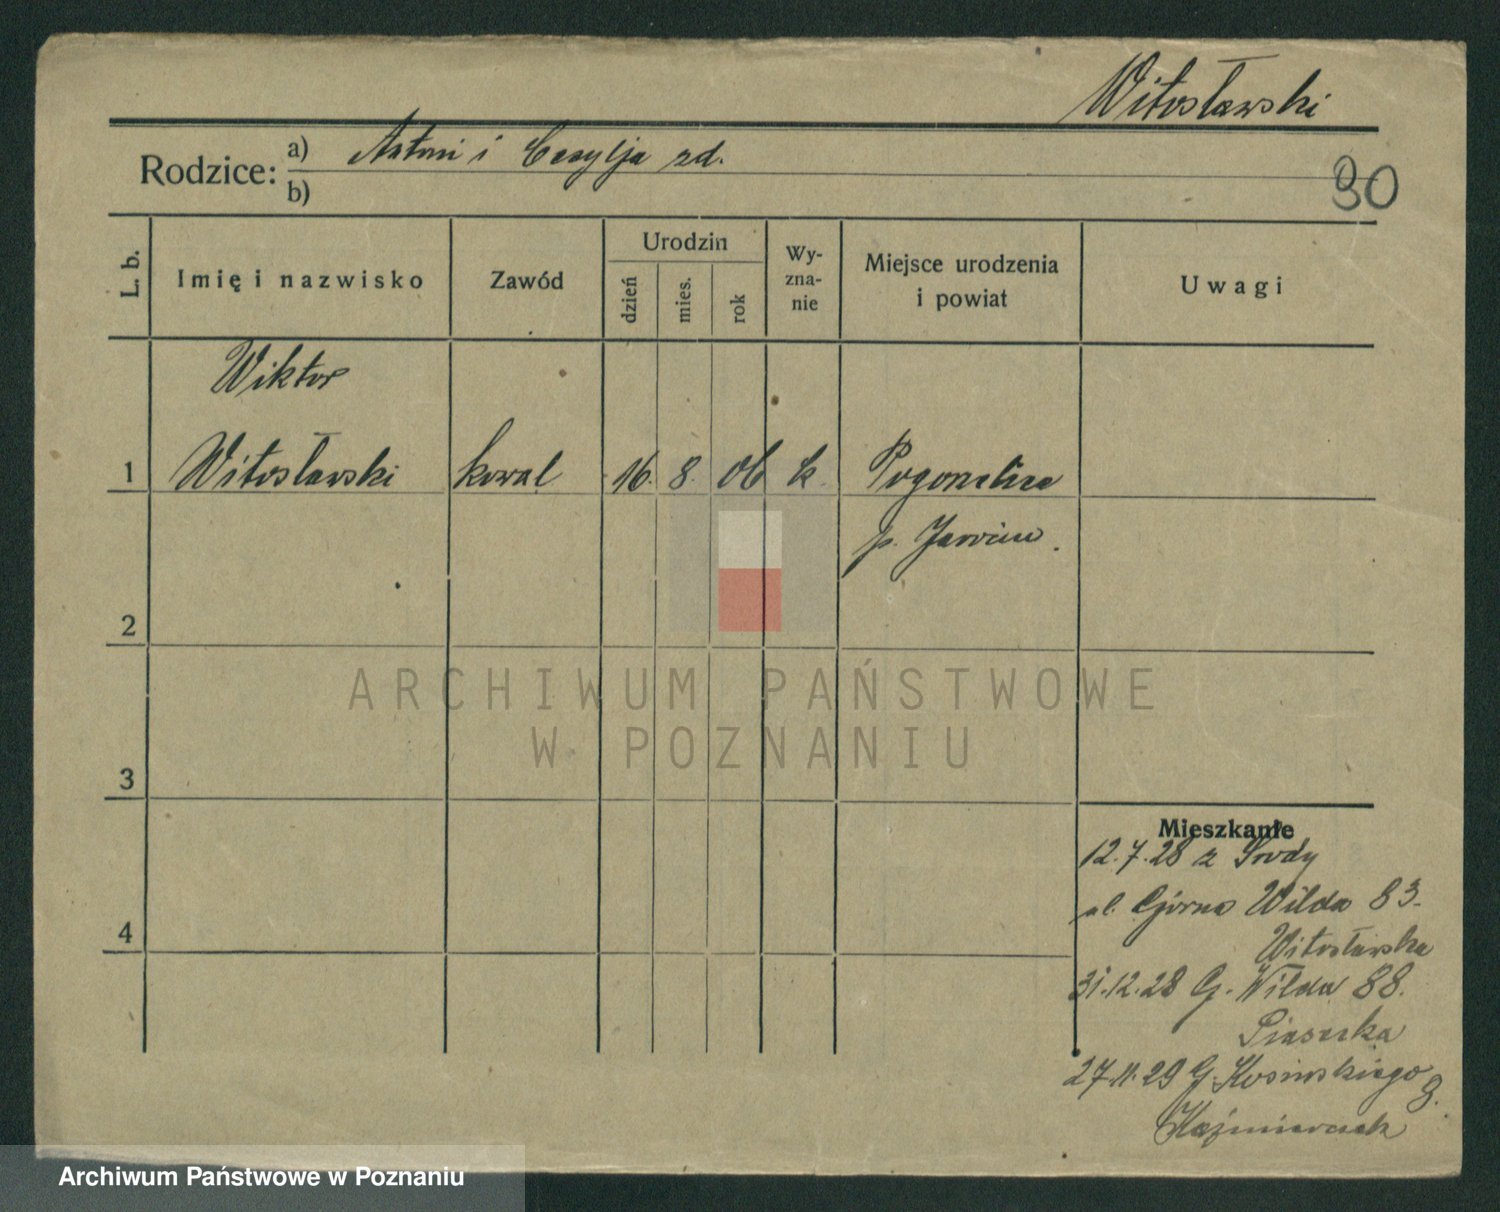 Witosławski
Rodzice: a) Antoni i Cecylja zd.
b)
30
L. b.
Imię i nazwisko
Zawód
Urodzin
dzień
mies.
rok
Wy-
zna-
nie
Miejsce urodzenia
i powiat
Uwagi
Wiktor
1 Witosławski kowal 16. 8. 06 k.
p. Jarocin.
2
3
4
ARCHIWUM PAŃSTWOWE
W POZNANIU
Mieszkanie
12.7.28 z Środy
ul. Górna Wilda 83.
Witosławska
31.12.28 G. Wilda 88.
Piasecka
27.11.29 G. Kosińskiego
Kaźmierczak
Archiwum Państwowe w Poznaniu